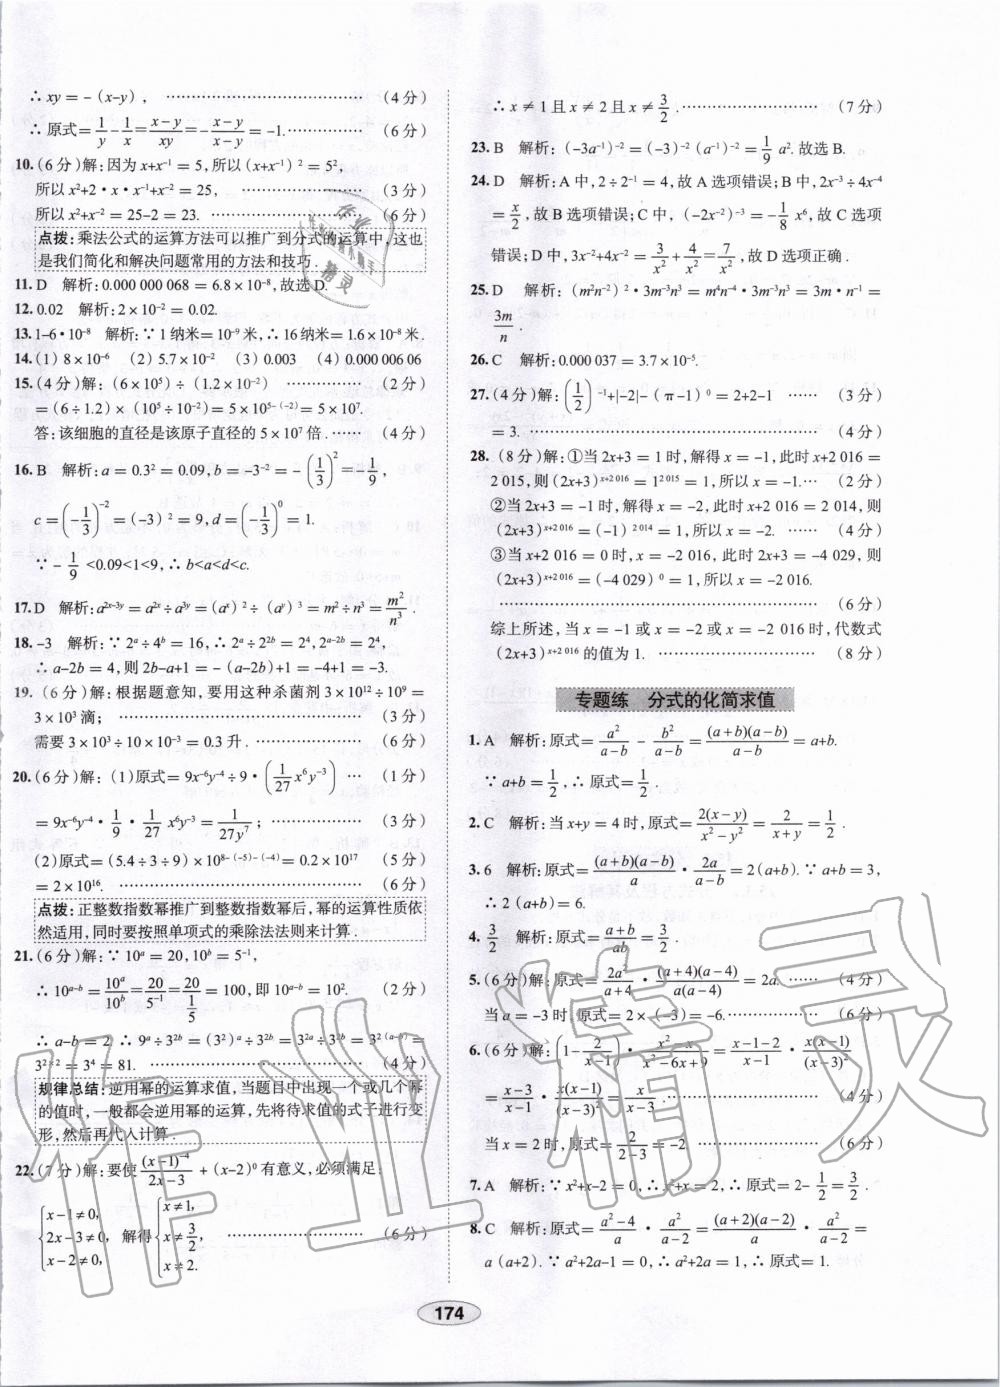 ∴ xy = -（x-y），……（4分）
∴ 原式= 1/y - 1/x = (x-y)/xy = -(x-y)/(x-y) = -1.……（6分）
10.（6分）解：因为 x+x⁻¹ = 5，所以（x+x⁻¹）² = 5²，
所以 x²+2·x·x⁻¹+x⁻² = 25，……（3分）
所以 x²+x⁻² = 25-2 = 23.……（6分）
点拨：乘法公式的运算方法可以推广到分式的运算中，这也
是我们简化和解决问题常用的方法和技巧.
11. D 解析：0.000 000 068 = 6.8×10⁻⁸，故选 D.
12. 0.02 解析：2×10⁻² = 0.02.
13. 1-6·10⁻⁸ 解析：∵ 1 纳米=10⁻⁹ 米，∴ 16 纳米=1.6×10⁻⁸ 米.
14.（1）8×10⁻⁶ （2）5.7×10⁻² （3）0.003 （4）0.000 006 06
15.（4分）解：（6×10⁵）÷（1.2×10⁻²）……（2分）
=（6÷1.2）×（10⁵÷10⁻²）= 5×10⁵⁻⁽⁻²⁾ = 5×10⁷.
答：该细胞的直径是该原子直径的 5×10⁷ 倍.……（4分）
16. B 解析：a = 0.3² = 0.09，b = -3⁻² = -(1/3)² = -1/9，
c = (-1/3)⁻² =（-3）² = 9，d = (-1/3)⁰ = 1.
∵ -1/9 <0.09<1<9，∴ b<a<d<c.
17. D 解析：a²ˣ⁻³ʸ = a²ˣ÷a³ʸ =（aˣ）²÷（aʸ）³ = m²÷n³ = m²/n³.
18. -3 解析：∵ 2ᵃ÷4ᵇ = 16，∴ 2ᵃ÷2²ᵇ = 2⁴，2ᵃ⁻²ᵇ = 2⁴，
∴ a-2b = 4，则 2b-a+1 = -（a-2b）+1 = -4+1 = -3.
19.（6分）解：根据题意知，要用这种杀菌剂 3×10¹²÷10⁹ =
3×10³ 滴；……（3分）
需要 3×10³÷10×10⁻³ = 0.3 升.……（6分）
20.（6分）解：（1）原式= 9x⁻⁶y⁻⁴÷9·(1/27 x⁶y⁻³) …（1分）
= 9x⁻⁶y⁻⁴·1/9·1/27 x⁶y⁻³ = 1/(27y⁷)；……（3分）
（2）原式=（5.4÷3÷9）×10⁸⁻⁽⁻⁵⁾⁻⁽⁻⁴⁾ = 0.2×10¹⁷ （5分）
= 2×10¹⁶.……（6分）
点拨：正整数指数幂推广到整数指数幂后，幂的运算性质依
然适用，同时要按照单项式的乘除法法则来计算.
21.（6分）解：∵ 10ᵃ = 20，10ᵇ = 5⁻¹，
∴ 10ᵃ⁻ᵇ = 10ᵃ/10ᵇ = 20/5⁻¹ = 20/(1/5) = 100，即 10ᵃ⁻ᵇ = 10². （2分）
∴ a-b = 2 ∴ 9ᵃ÷3²ᵇ =（3²）ᵃ÷3²ᵇ = 3²ᵃ÷3²ᵇ = 3²⁽ᵃ⁻ᵇ⁾ =
3²ˣ² = 3⁴ = 81.……（4分）
规律总结：逆用幂的运算求值，当题目中出现一个或几个幂
的值时，一般都会逆用幂的运算，先将待求值的式子进行变
形，然后再代入计算.
22.（7分）解：要使 (x-1)⁻⁴/(2x-3) +（x-2）⁰ 有意义，必须满足：
{x-1≠0，2x-3≠0，x-2≠0， 解得 {x≠1，x≠3/2，x≠2. ……（6分）
∴ x≠1 且 x≠2 且 x≠3/2.……（7分）
23. B 解析：（-3a⁻¹）⁻² =（-3）⁻²（a⁻¹）⁻² = 1/9 a². 故选 B.
24. D 解析：A 中，2÷2⁻¹ = 4，故 A 选项错误；B 中，2x⁻³÷4x⁻⁴
= x/2，故 B 选项错误；C 中，（-2x⁻²）⁻³ = -1/8 x⁶，故 C 选项
错误；D 中，3x⁻²+4x⁻² = 3/x² + 4/x² = 7/x²，故 D 选项正确.
25. D 解析：（m²n⁻²）²·3m⁻³n³ = m⁴n⁻⁴·3m⁻³n³ = 3m·n⁻¹ =
3m/n.
26. C 解析：0.000 037 = 3.7×10⁻⁵.
27.（4分）解：(1/2)⁻¹+|-2|-（π-1）⁰ = 2+2-1 ……（3分）
= 3.……（4分）
28.（8分）解：①当 2x+3 = 1 时，解得 x = -1，此时 x+2 016 =
2 015，则（2x+3）ˣ⁺²⁰¹⁶ = 1²⁰¹⁵ = 1，所以 x = -1.…（2分）
②当 2x+3 = -1 时，解得 x = -2，此时 x+2 016 = 2 014，则
（2x+3）ˣ⁺²⁰¹⁶ =（-1）²⁰¹⁴ = 1，所以 x = -2.……（4分）
③当 x+2 016 = 0 时，x = -2 016，此时 2x+3 = -4 029，则
（2x+3）ˣ⁺²⁰¹⁶ =（-4 029）⁰ = 1，所以 x = -2 016.
……（6分）
综上所述，当 x = -1 或 x = -2 或 x = -2 016 时，代数式
（2x+3）ˣ⁺²⁰¹⁶ 的值为 1.……（8分）
专题练 分式的化简求值
1. A 解析：原式= a²/(a-b) - b²/(a-b) = (a+b)(a-b)/(a-b) = a+b.
∵ a+b = 1/2，∴ 原式= 1/2.
2. C 解析：当 x+y = 4 时，原式= 2(x-y)/(x²-y²) = 2/(x+y) = 1/2.
3. 6 解析：原式= (a+b)(a-b)/b · 2a/(a-b) = 2（a+b）. ∵ a+b = 3，
∴ 2（a+b）= 6.
4. 3/2 解析：原式= (a+b)/ab = 3/2.
5.（6分）解：原式= 2a²/(a+4) · (a+4)(a-4)/(a(a-4)) = 2a.……（4分）
当 a = -3 时，原式= 2×（-3）= -6.……（6分）
6.（6分）解：(1 - 2/(x-1)) · (x²-x)/(x²-6x+9) = (x-1-2)/(x-1) · x(x-1)/(x-3)²
= (x-3)/(x-1) · x(x-1)/(x-3)² = x/(x-3).……（4分）
当 x = 2 时，原式= 2/(2-3) = -2.……（6分）
7. A 解析：∵ x²+x-2 = 0，∴ x²+x = 2，∴ 原式= 2- 1/2 = 3/2.
8. C 解析：原式= (a²-4)/a · a²/(a-2) = (a+2)(a-2)/a · a²/(a-2) =
a（a+2）. ∵ a²+2a-1 = 0，∴ a²+2a = 1，∴ 原式= 1.
174
作业精灵